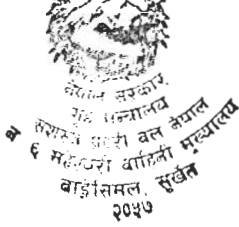 नेपाल सरकार
गृह मन्त्रालय
सशस्त्र प्रहरी बल नेपाल
६ वाहिनी मुख्यालय
बाड़ीसमल, सुर्खेत
२०५७